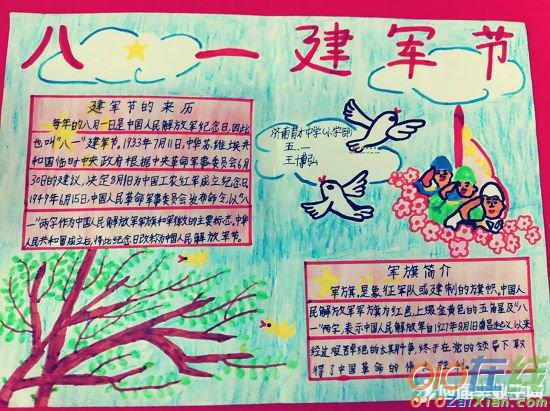 八一建军节
建军节的来历
每年的八月一日是中国人民解放军纪念日,因此
也叫"八一"建军节。1933年7月11日,中华苏维埃共
和国临时中央政府根据中央革命军事委员会6月
30日的建议,决定8月1日为中国工农红军成立纪念日
1949年6月15日,中国人民革命军事委员会发布命令,以"八
一"两字作为中国人民解放军军旗和军徽的主要标志,中华
人民共和国成立后,将此纪念日改称为中国人民解放军节。
济南育才中学(小学部)
五.一
王博弘
军旗简介
军旗,是象征军队或建制的旗帜,中国人
民解放军军旗为红色,上缀金黄色的五角星及"八
一"两字,表示中国人民解放军自1927年8月1日南昌起义以来
经过艰苦卓绝的太其斗争,终于在党的领导下取
得了中国革命的伟大
应届毕业学网
910在线
910ZaiXian.com